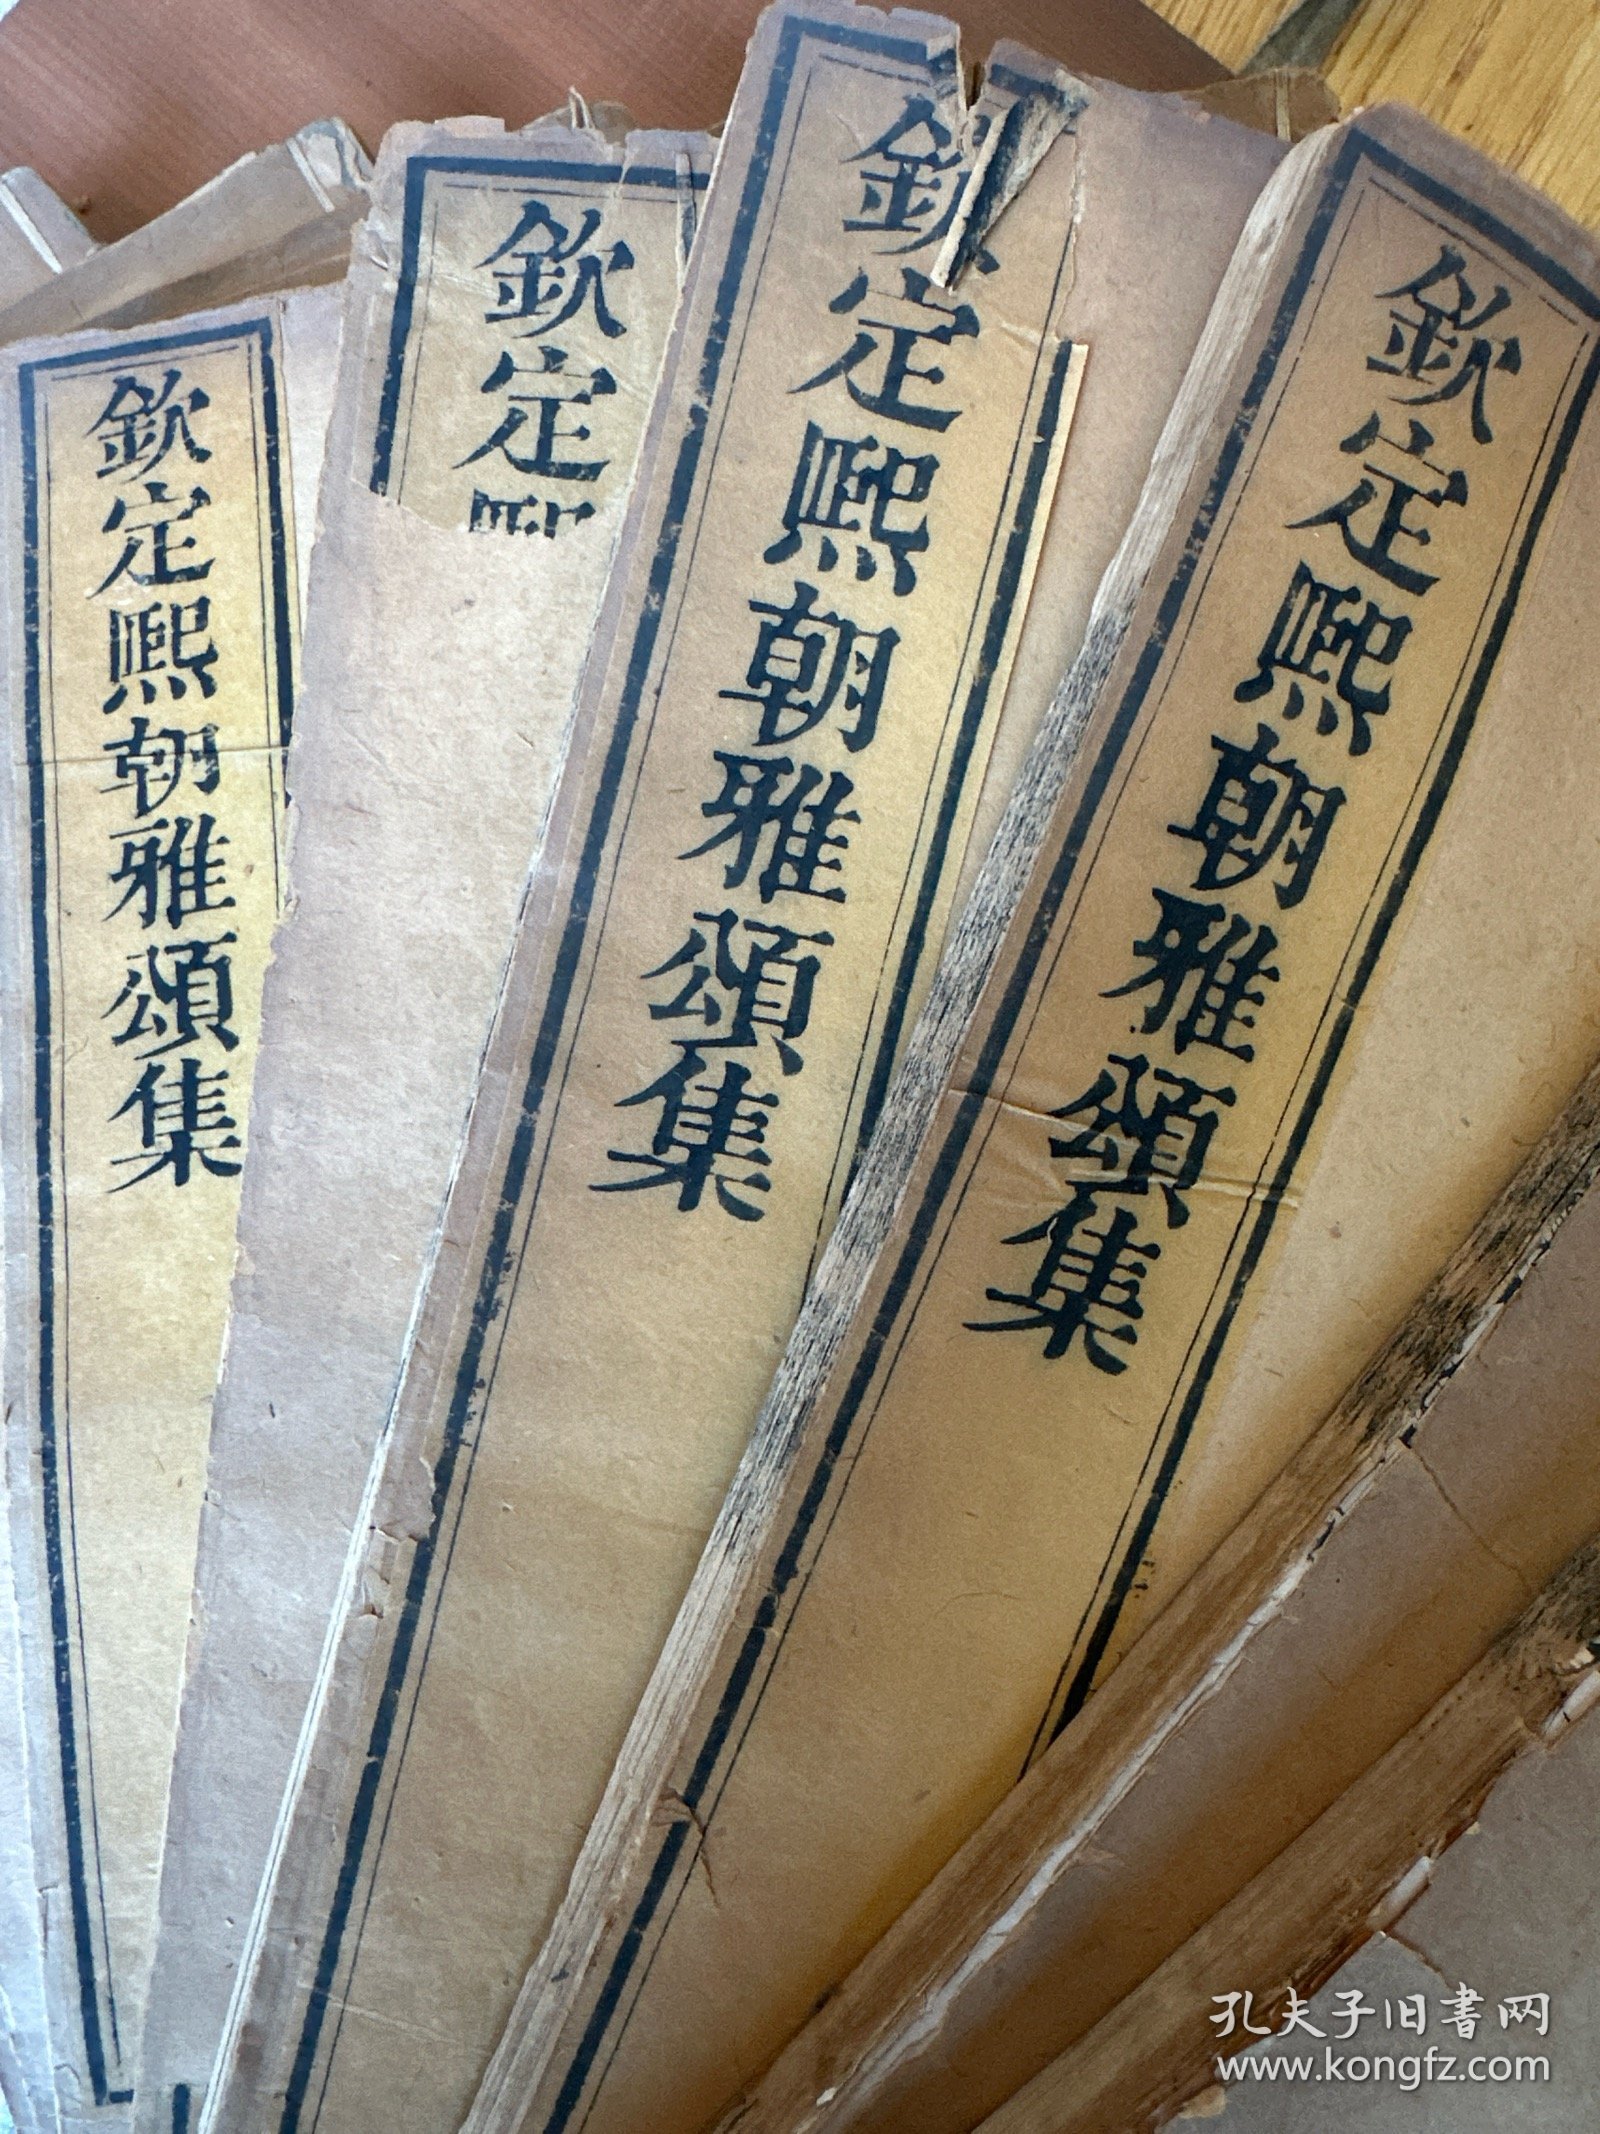 欽定熙朝雅頌集
欽定熙
欽定熙朝雅頌集
欽定熙朝雅頌集
孔夫子旧書网
www.kongfz.com